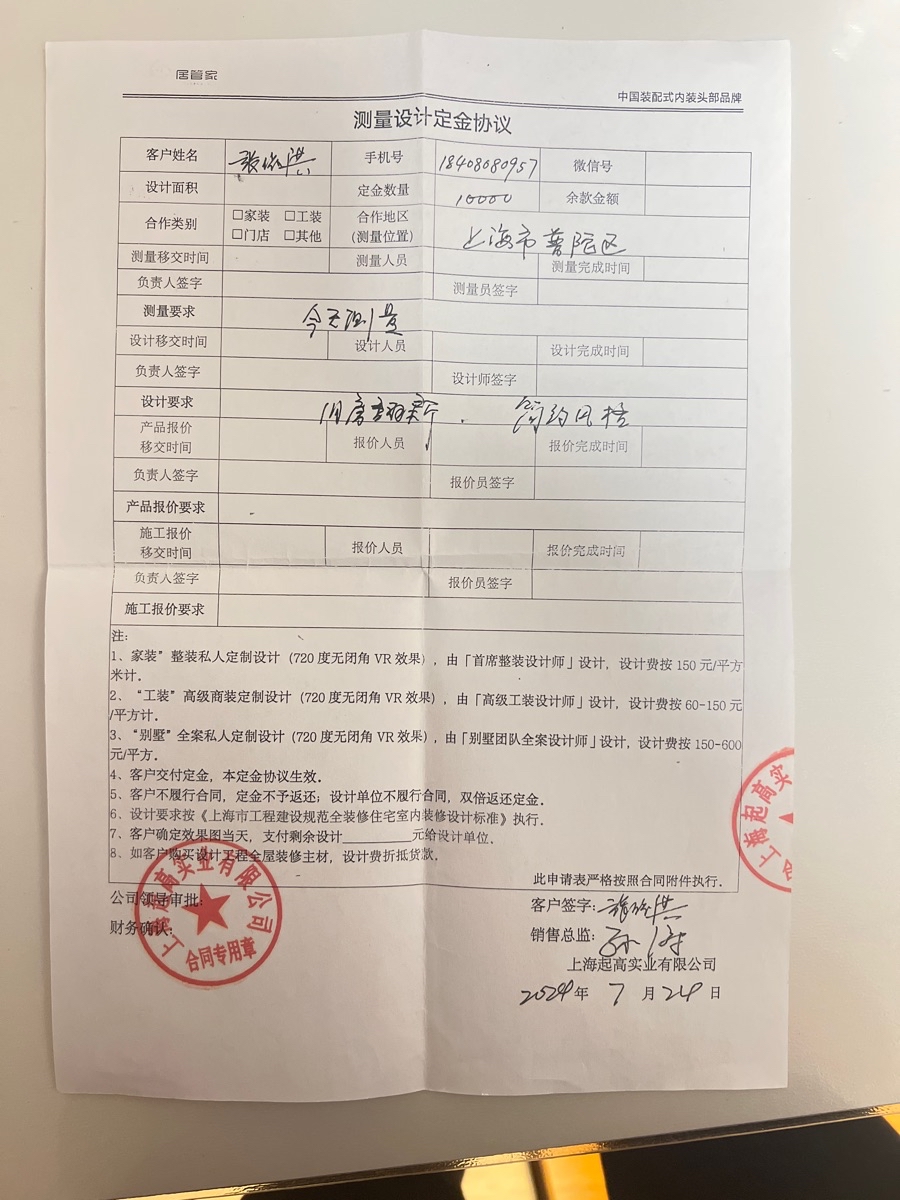 居管家
中国装配式内装头部品牌
测量设计定金协议
客户姓名 手机号 18408080957 微信号
设计面积 定金数量 10000 余款金额
合作类别 □家装 □工装 □门店 □其他 合作地区 (测量位置) 上海市普陀区
测量移交时间 测量人员 测量完成时间
负责人签字 测量员签字
测量要求 今天测量
设计移交时间 设计人员 设计完成时间
负责人签字 设计师签字
设计要求 旧房翻新. 简约风格
产品报价 移交时间 报价人员 报价完成时间
负责人签字 报价员签字
产品报价要求
施工报价 移交时间 报价人员 报价完成时间
负责人签字 报价员签字
施工报价要求
注:
1、家装”整装私人定制设计（720 度无闭角 VR 效果）, 由「首席整装设计师」设计, 设计费按 150 元/平方
米计.
2、“工装”高级商装定制设计（720 度无闭角 VR 效果）, 由「高级工装设计师」设计, 设计费按 60-150 元
/平方计.
3、“别墅”全案私人定制设计（720 度无闭角 VR 效果）, 由「别墅团队全案设计师」设计, 设计费按 150-600
元/平方.
4、客户交付定金, 本定金协议生效.
5、客户不履行合同, 定金不予返还; 设计单位不履行合同, 双倍返还定金.
6、设计要求按《上海市工程建设规范全装修住宅室内装修设计标准》执行.
7、客户确定效果图当天, 支付剩余设计__________元给设计单位.
8、如客户购买设计工程全屋装修主材, 设计费折抵货款.
此申请表严格按照合同附件执行.
公司领导审批:
客户签字:
财务确认:
销售总监:
上海起高实业有限公司
2024 年 7 月 24 日
上海起高实业有限公司
合同专用章
上海起高实